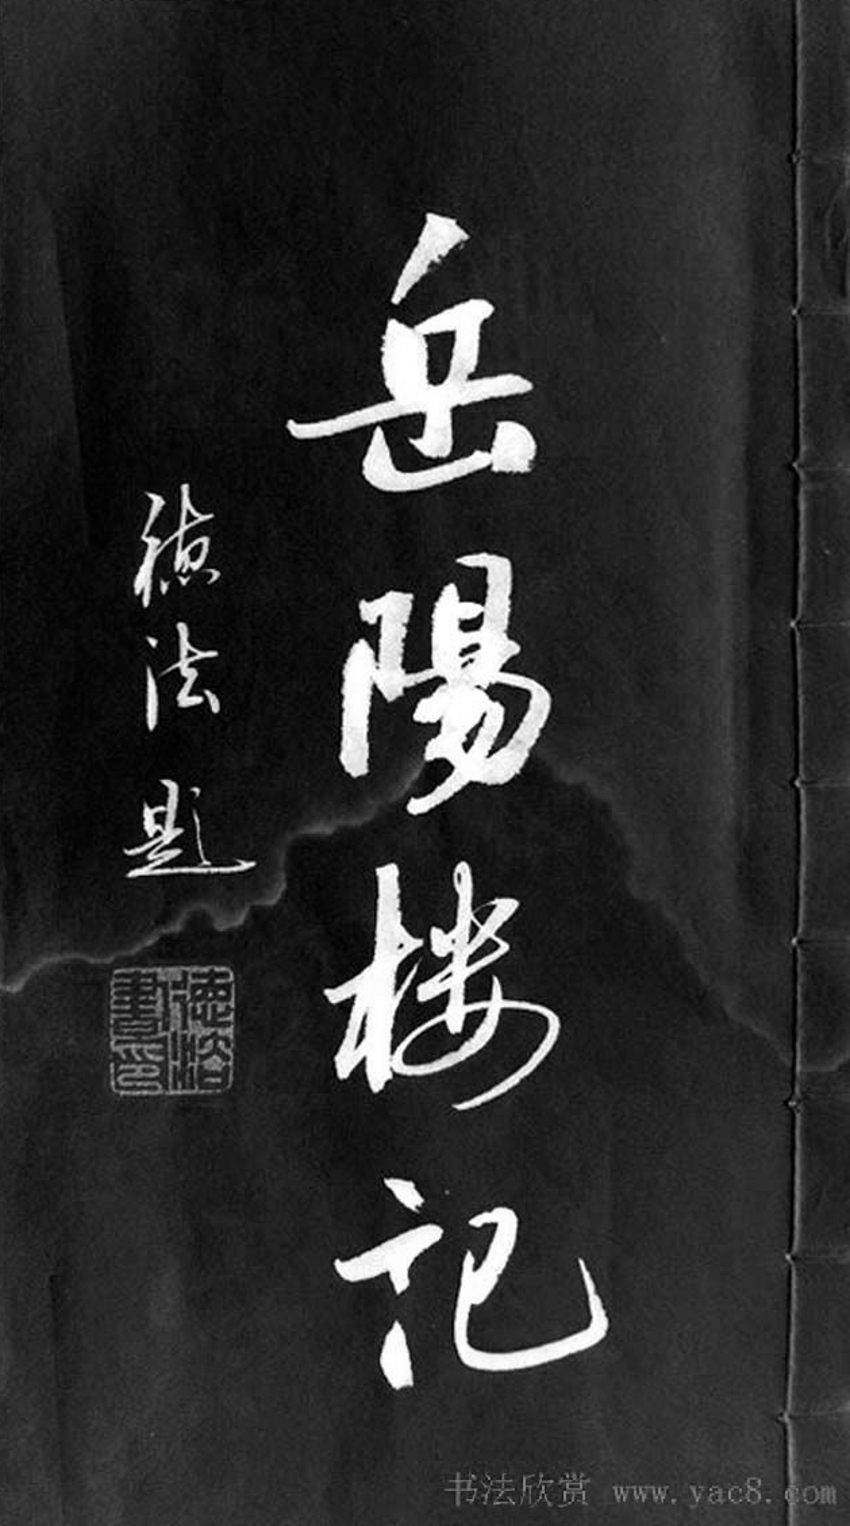 岳陽楼记
德法题
德法書印
书法欣赏 www.yac8.com